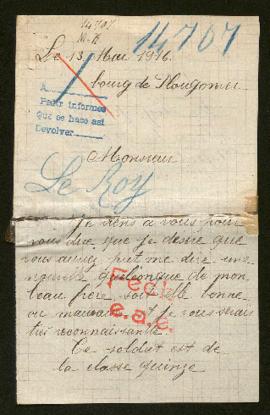 14707
M-B
14707
Le 13 Mai 1916.
bourg de Plougonver
A
Pedir informes
Que se hace así
Devolver
Monsieur
Le Roy
Je viens à vous pour
vous dire que je désire que
vous auriez put me dire une
nouvelle quelconque de mon
beau frère soit elle bonne
ou mauvaise et je vous serais
très reconnaissante
Fecha
e.a.c.
Ce soldat est de
la classe quinze